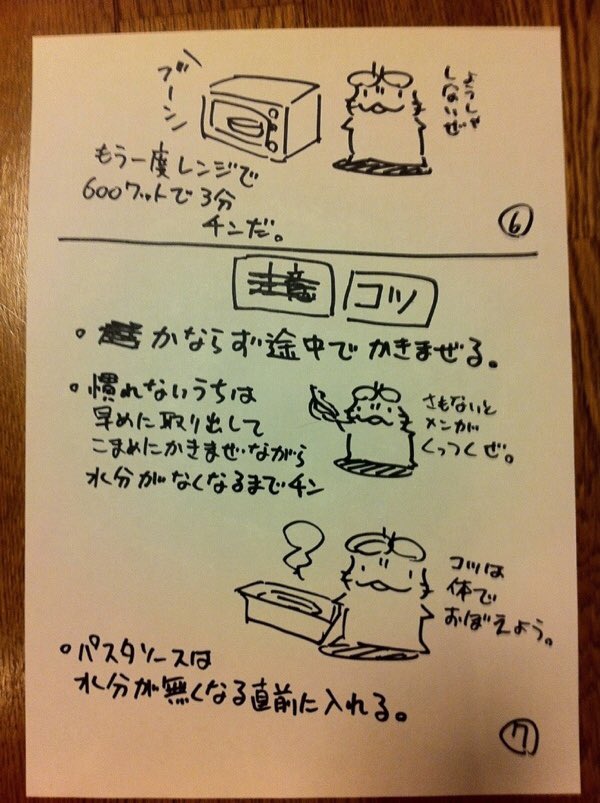 ブーン
ようしゃ
しないぜ
もう一度レンジで
600ワットで3分
チンだ。
⑥
注意 コツ
・かならず途中でかきまぜる。
・慣れないうちは
早めに取り出して
こまめにかきまぜながら
水分がなくなるまでチン
さもないと
メンが
くっつくぜ。
コツは
体で
おぼえよう。
・パスタソースは
水分が無くなる直前に入れる。
⑦